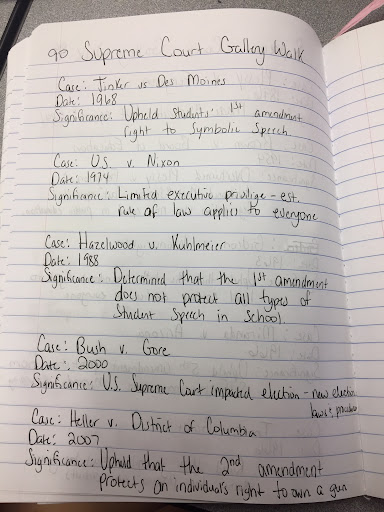 90 Supreme Court Gallery Walk
Case: Tinker vs Des Moines
Date: 1968
Significance: Upheld students' 1st amendment
right to Symbolic Speech
Case: U.S. v. Nixon
Date: 1974
Significance: Limited executive privilige - est.
rule of law applies to everyone
Case: Hazelwood v. Kuhlmeier
Date: 1988
Significance: Determined that the 1st amendment
does not protect all types of
Student Speech in School.
Case: Bush v. Gore
Date: 2000
Significance: U.S. Supreme Court impacted election - new election
laws &
Case: Heller v. District of Columbia
Date: 2007
Significance: Uphold that the 2nd amendment
protects an individual's right to own a gun